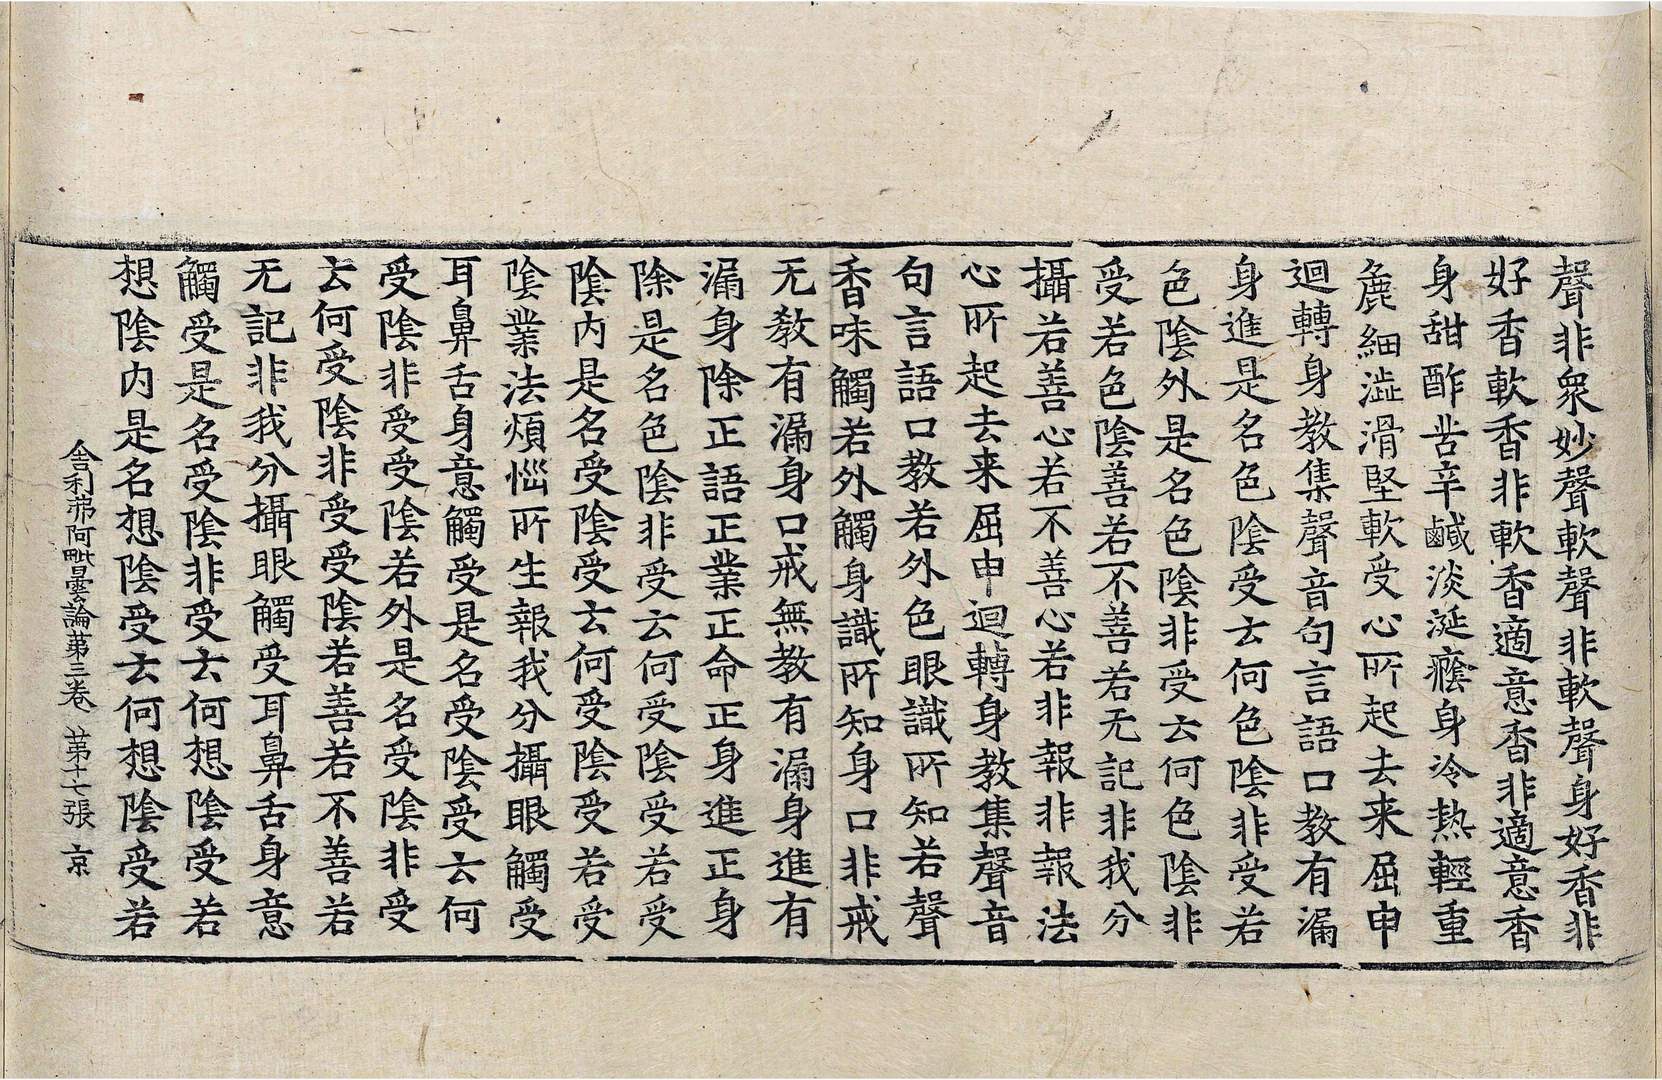 聲非衆妙聲軟聲非軟聲身好香非
好香軟香非軟香適意香非適意香
身甜酢苦辛鹹淡涎癊身冷熱輕重
麁細澁滑堅軟受心所起去来屈申
迴轉身教集聲音句言語口教有漏
身進是名色陰受云何色陰非受若
色陰外是名色陰非受云何色陰非
受若色陰善若不善若无記非我分
攝若善心若不善心若非報非報法
心所起去来屈申迴轉身教集聲音
句言語口教若外色眼識所知若聲
香味觸若外觸身識所知身口非戒
无教有漏身口戒無教有漏身進有
漏身除正語正業正命正身進正身
除是名色陰非受云何受陰受若受
陰内是名受陰受云何受陰受若受
陰業法煩惱所生報我分攝眼觸受
耳鼻舌身意觸受是名受陰受云何
受陰非受受陰若外是名受陰非受
云何受陰非受受陰若善若不善若
无記非我分攝眼觸受耳鼻舌身意
觸受是名受陰非受云何想陰受若
想陰内是名想陰受云何想陰受若
舎利弗阿毗曇論苐三卷 苐十七張 京